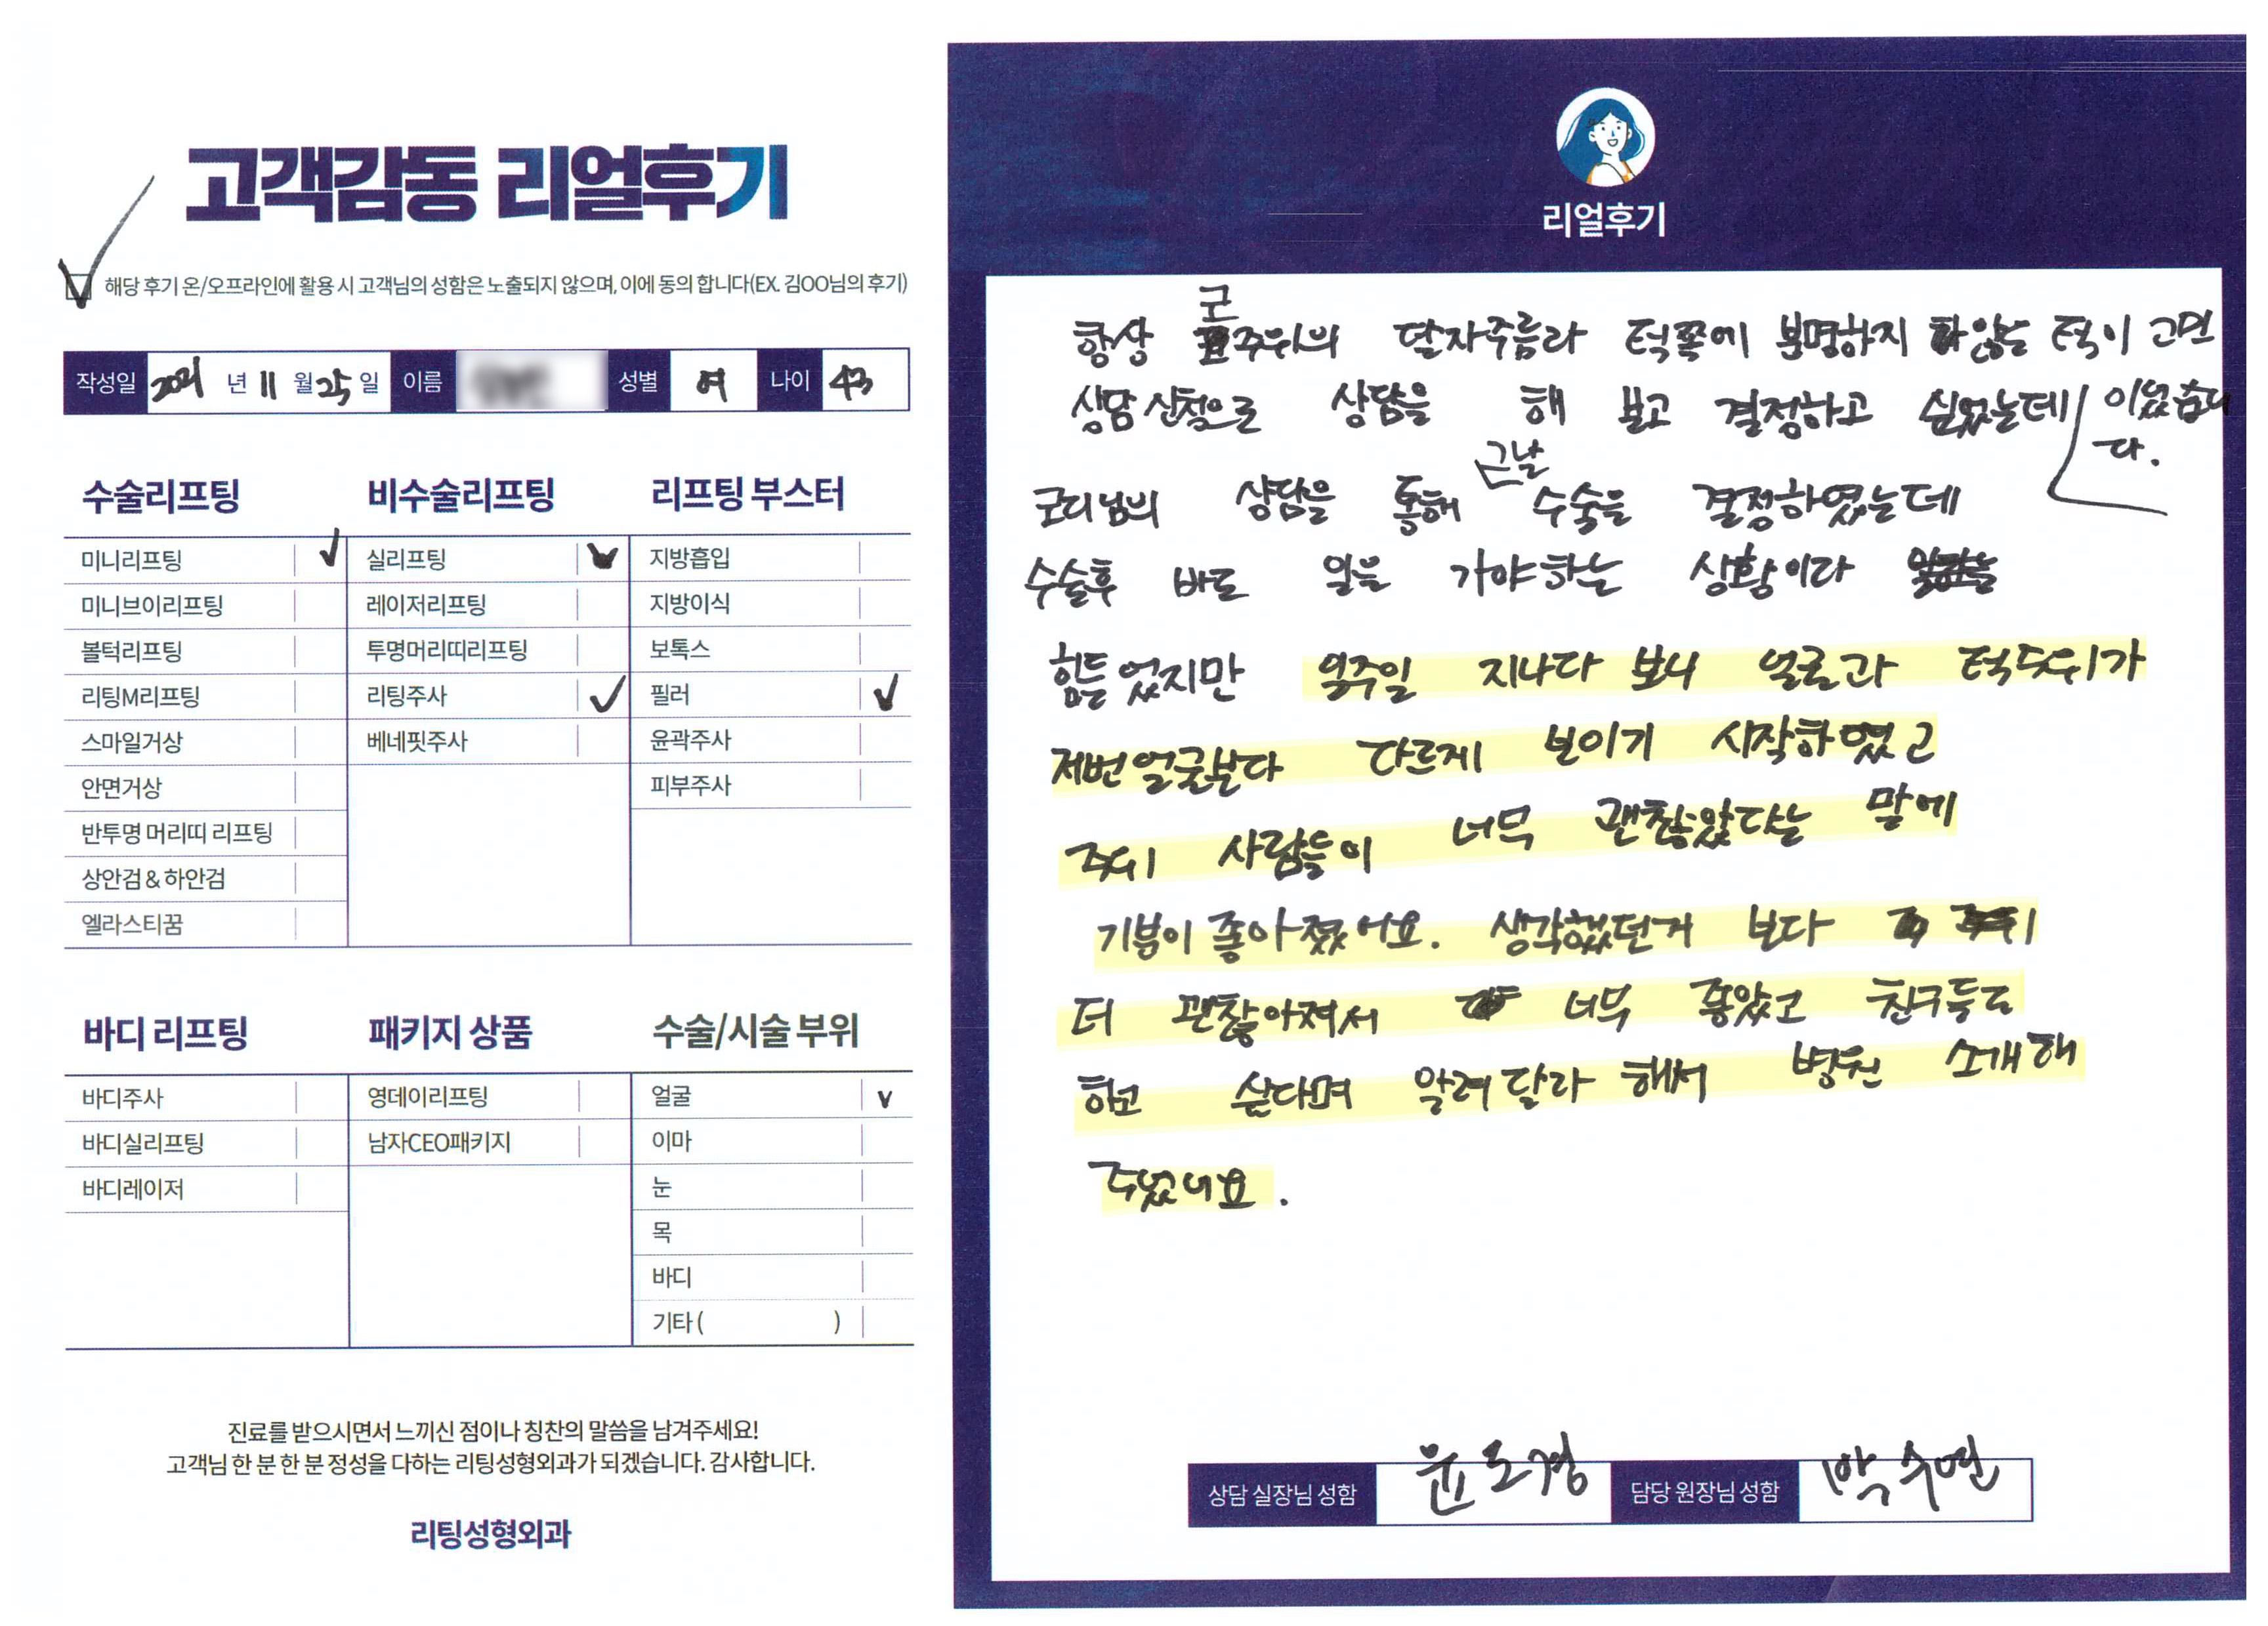 고객감동 리얼후기
해당 후기 온/오프라인에 활용 시 고객님의 성함은 노출되지 않으며, 이에 동의 합니다(EX. 김OO님의 후기)
작성일 2021 년 11 월 25 일 이름 성별 여 나이 43
수술리프팅 비수술리프팅 리프팅 부스터
미니리프팅 실리프팅 지방흡입
미니브이리프팅 레이저리프팅 지방이식
볼턱리프팅 투명머리띠리프팅 보톡스
리팅M리프팅 리팅주사 필러
스마일거상 베네핏주사 윤곽주사
안면거상 피부주사
반투명 머리띠 리프팅
상안검 & 하안검
엘라스티꿈
바디 리프팅 패키지 상품 수술/시술 부위
바디주사 영데이리프팅 얼굴
바디실리프팅 남자CEO패키지 이마
바디레이저 눈
목
바디
기타 ( )
진료를 받으시면서 느끼신 점이나 칭찬의 말씀을 남겨주세요!
고객님 한 분 한 분 정성을 다하는 리팅성형외과가 되겠습니다. 감사합니다.
리팅성형외과
리얼후기
항상 코주위의 팔자주름과 턱쪽에 분명하지 않는 턱이 고민
이었습니다.
상담 신청으로 상담을 해 보고 결정하고 싶었는데
코디님의 상담을 통해 그날 수술을 결정하였는데
수술후 바로 일을 가야하는 상황이라
힘들었지만 일주일 지나다 보니 얼굴과 턱두위가
저번얼굴보다 다르게 보이기 시작하였고
주위 사람들이 너무 괜찮았다는 말에
기분이 좋아졌어요. 생각했던거 보다
더 괜찮아져서 너무 좋았고 친구들도
하고 싶다며 알려달라 해서 병원 소개해
주었어요.
상담 실장님 성함 윤도경 담당 원장님 성함 박수연